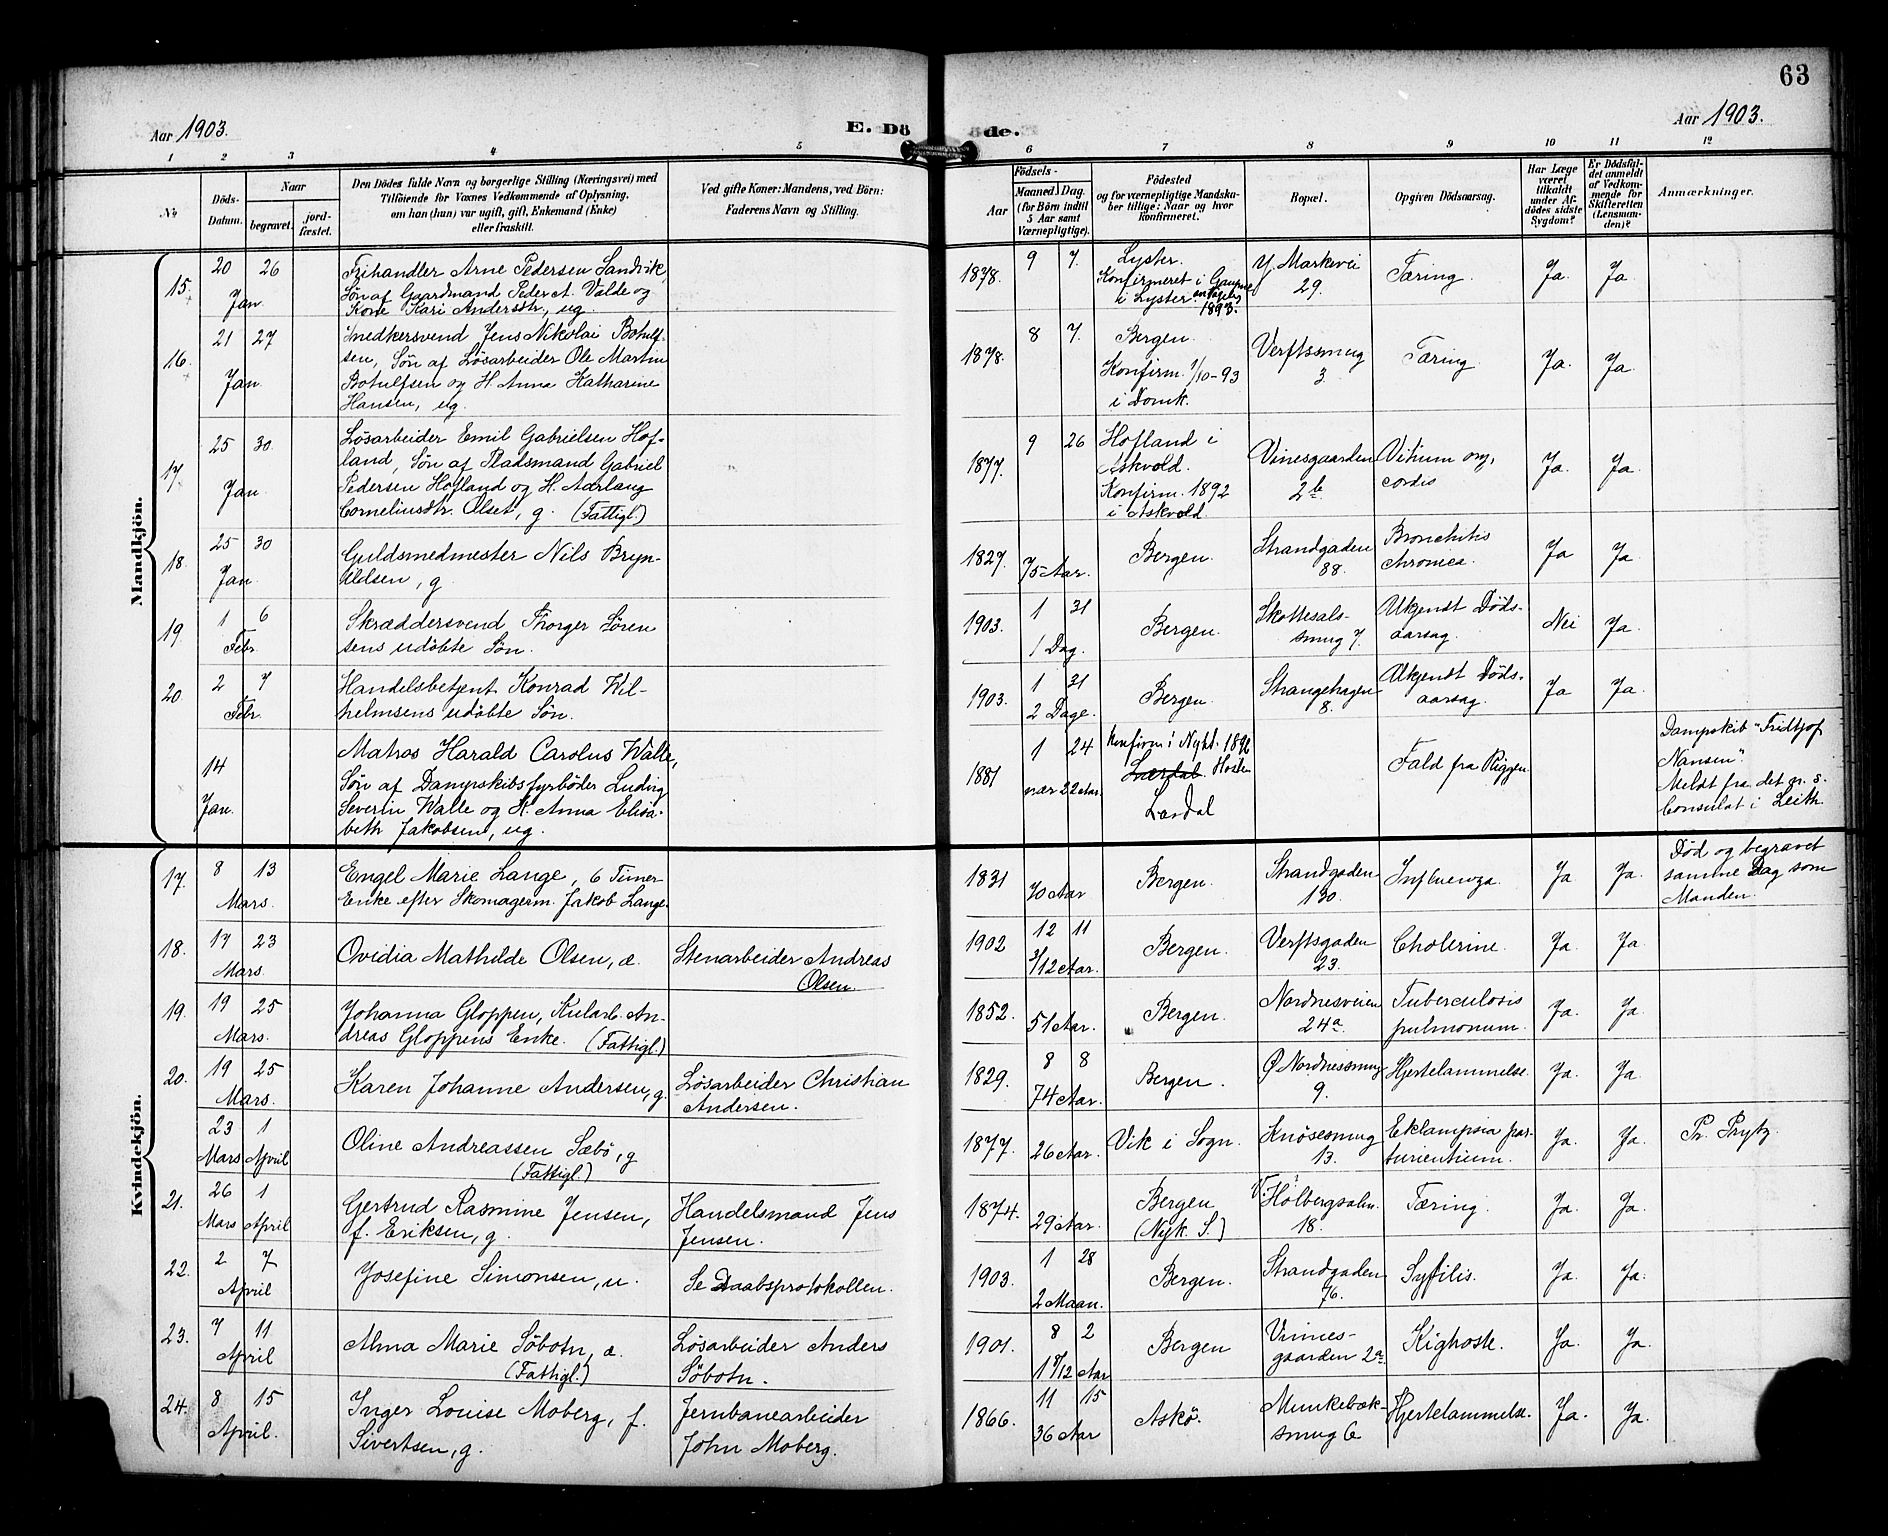 63
Aar 1903.
E. Dö
de.
Aar 1903.
1 2 3 4 5 6 7 8 9 10 11 12
No
Döds-
Datum.
Naar
begravet.
jord-
fæstet.
Den Dödes fulde Navn og borgerlige Stilling (Næringsvei) med
Tilföiende for Voxnes Vedkommende af Oplysning,
om han (hun) var ugift, gift, Enkemand (Enke)
eller fraskilt.
Ved gifte Koner: Mandens, ved Börn:
Faderens Navn og Stilling.
Födsels-
Aar
Maaned. Dag.
(for Börn indtil
5 Aar samt
Værnepligtige).
Födested
og for værnepligtige Mandska-
ber tillige: Naar og hvor
konfirmeret.
Bopæl.
Opgiven Dödsaarsag.
Har Læge
været
tilkaldt
under Af-
dödes sidste
Sygdom?
Er Dödsfal-
det anmeldt
af Vedkom-
mende for
Skifteretten
(Lensman-
den)?
Anmærkninger.
Mandkjön.
15.
20 26
Jan
Frihandler Arne Pedersen Sandvik,
Søn af Gaardmand Peder A. Valde og
Kone Kari Andersdtr., ug.
1878.
9 7.
Lyster.
Konfirmeret i Gaupne
i Lyster
1893.
Y. Markevei
29.
Tæring.
Ja.
Ja
16
21 27
Jan
Snedkersvend Jens Nikolai Botulf-
sen, Søn af Løsarbeider Ole Martin
Botulfsen og H. Anna Katharine
Hansen, ug.
1878.
8 7.
Bergen.
Konfirm. 1/10-93
i Domk.
Verftssmug
3.
Tæring
Ja.
Ja.
17
25 30
Jan
Løsarbeider Emil Gabrielsen Hof-
land, Søn af Pladsmand Gabriel
Pedersen Hofland og H. Aarlaug
Corneliusdtr. Olset, g. (Fattigl.)
1877.
9 26
Hofland i
Askvold.
Konfirm. 1892
i Askvold.
Vinesgaarden
2b
Vitium org.
cordis
Ja.
Ja.
18.
25 30
Jan
Guldsmedmester Nils Bryn-
ildsen, g
1827.
75 Aar.
Bergen.
Strandgaden
88.
Bronchitis
chronica.
Ja
Ja
19
1 6
Febr
Skræddersvend Thorger Sören
sens udöbte Sön.
1903.
1 31
1 Dag.
Bergen.
Skottesals-
smug 7.
Ukjendt Døds-
aarsag.
Nei
Ja.
20
2 7
Febr.
Handelsbetjent Konrad Wil-
helmsens udöbte Sön.
1903.
1 31
2 Dage.
Bergen.
Strangehagen
8.
Ukjendt Døds-
aarsag.
Ja
Ja.
14
Jan.
Matros Harald Carolus Walle,
Søn af Dampskibsfyrbøder Ludvig
Severin Walle og H. Anna Elisa-
beth Jakobsen, ug.
1881
1 24
nær 22 Aar.
Konfirm i Nyk. 1896
Lærdal.
Lærdal
Fald fra Riggen
Dampskib "Fridtjof
Nansen".
Meldt fra det gr. s.
Consulat i Leith
Kvindekjön.
17.
8 13
Mars.
Engel Marie Lange, 6 Timer
Enke efter Skomagerm. Jakob Lange.
1831
70 Aar
Bergen.
Strandgaden
130.
Influenza.
Ja
Ja.
Død og begravet
samme Dag som
Manden.
18.
17 23
Mars.
Ovidia Mathilde Olsen, æ.
Stenarbeider Andreas
Olsen.
1902
12 11
3/12 Aar.
Bergen.
Verftsgaden
23.
Cholerine.
Ja.
Ja.
19.
19 25
Mars.
Johanna Gloppen, Kularb. An-
dreas Gloppens Enke. (Fattigl.)
1852.
51 Aar.
Bergen.
Nordnesveien
24a
Tuberculosis
pulmonum.
Ja.
Ja.
20.
19 25
Mars.
Karen Johanne Andersen, g.
Løsarbeider Christian
Andersen.
1829.
8 8
74 Aar.
Bergen.
Ø Nordnessmug
9.
Hjertelammelse.
Ja.
Ja.
23 1
Mars April
Oline Andreassen Sæbö, g
(Fattigl.)
1877.
26 Aar.
Vik i Sogn.
Knösesmug
13.
Eklampsia par-
turientium.
Ja.
Ja.
Pr. Prytz
21.
26 1
Mars April
Gertrud Rasmine Jensen,
f. Eriksen, g.
Handelsmand Jens
Jensen.
1874.
29 Aar.
Bergen
(Nyk. S.)
V. Holbergsalm.
18.
Tæring.
Ja.
Ja.
22.
2 7
April
Josefine Simonsen, u.
Se Daabsprotokollen.
1903.
1 28
2 Maan.
Bergen.
Strandgaden
76.
Syfilis.
Ja.
Ja.
23.
7 11
April
Alma Marie Söbotn, æ.
(Fattigl.)
Løsarbeider Anders
Söbotn.
1901.
8 2
1 7/12 Aar
Bergen
Vinnes-
gaarden 2a
Kighoste.
Ja.
Ja.
24.
8 15
April.
Inger Louise Moberg, f.
Sivertsen, g.
Jernbanearbeider
John Moberg.
1866.
11 15
36 Aar
Askø.
Munkebæk-
smug 6
Hjertelammelse.
Ja.
Ja.